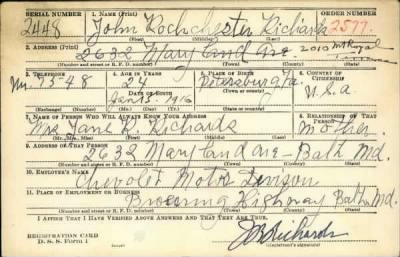 SERIAL NUMBER 1. NAME (Print) ORDER NUMBER
2448 John Rochchester Richards 2577
(First) (Middle) (Last)
2. ADDRESS (Print)
2632 Maryland Ave 2010 Mt Royal Terrace
(Number and street or R. F. D. number) (Town) (County) (State)
3. TELEPHONE 4. AGE IN YEARS 5. PLACE OF BIRTH 6. COUNTRY OF CITIZENSHIP
24 Petersburg
DATE OF BIRTH
Jan 15 1916 U.S.A
(Exchange) (Number) (Mo.) (Day) (Yr.) (Town or county) (State or country)
7. NAME OF PERSON WHO WILL ALWAYS KNOW YOUR ADDRESS 8. RELATIONSHIP OF THAT PERSON
Mrs Jane Richards Mother
(Mr., Mrs., Miss) (First) (Middle) (Last)
9. ADDRESS OF THAT PERSON
2632 Maryland Ave Balto Md.
(Number and street or R. F. D. number) (Town) (County) (State)
10. EMPLOYER'S NAME
Chevrolet Motor Devison
11. PLACE OF EMPLOYMENT OR BUSINESS
Broening Highway Balto Md.
(Number and street or R. F. D. number) (Town) (County) (State)
I AFFIRM THAT I HAVE VERIFIED ABOVE ANSWERS AND THAT THEY ARE TRUE.
REGISTRATION CARD
D. S. S. Form 1 Richards
(Registrant's signature)